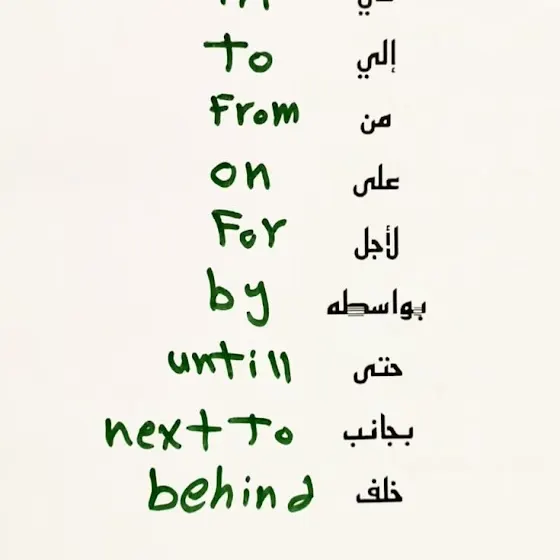 in في
To إلي
From من
on على
For لأجل
by بواسطه
untill حتى
next To بجانب
behind خلف